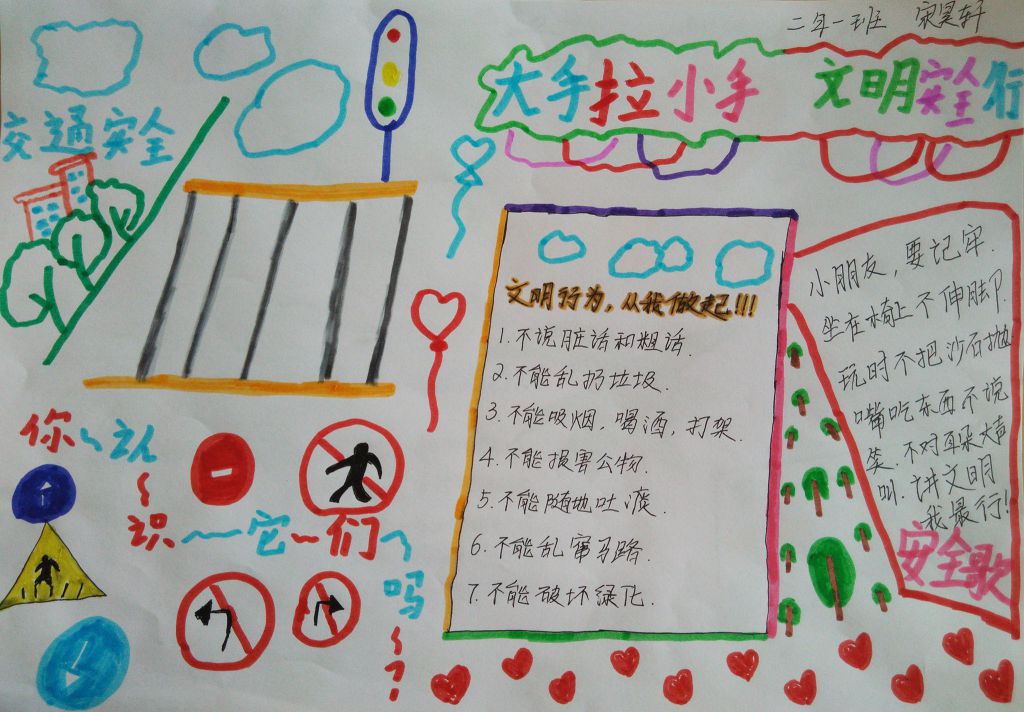 二年一班 宋昊轩
大手拉小手 文明安全行
交通安全
文明行为，从我做起!!!
1.不说脏话和粗话.
2.不能乱扔垃圾.
3.不能吸烟，喝酒，打架.
4.不能损害公物.
5.不能随地吐痰.
6.不能乱窜马路.
7.不能破坏绿化.
小朋友，要记牢.
坐在椅上不伸脚.
玩时不把沙石抛
嘴吃东西不说
笑.不对耳朵大声
叫.讲文明
我最行!
安全歌
你~认
~
识~它~们~
吗
~
?